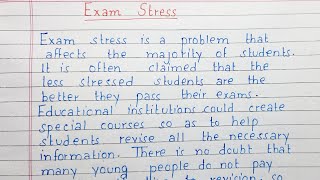 Exam Stress
Exam stress is a problem that
affects the majotity of students.
It is often claimed that the
less stressed students are the
better they pass their exams.
Educational institutions could create
special courses so as to help
students revise all the necessary
information. There is no doubt that
many young people do not pay
to revision, so